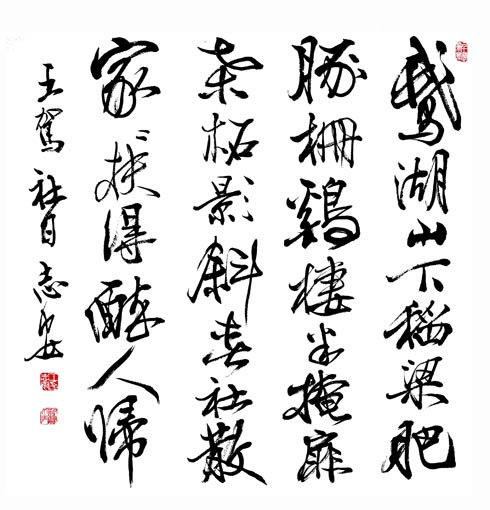 鵝湖山下稻粱肥
豚柵鷄棲半掩扉
桑柘影斜春社散
家〻扶得醉人歸
王駕社日志